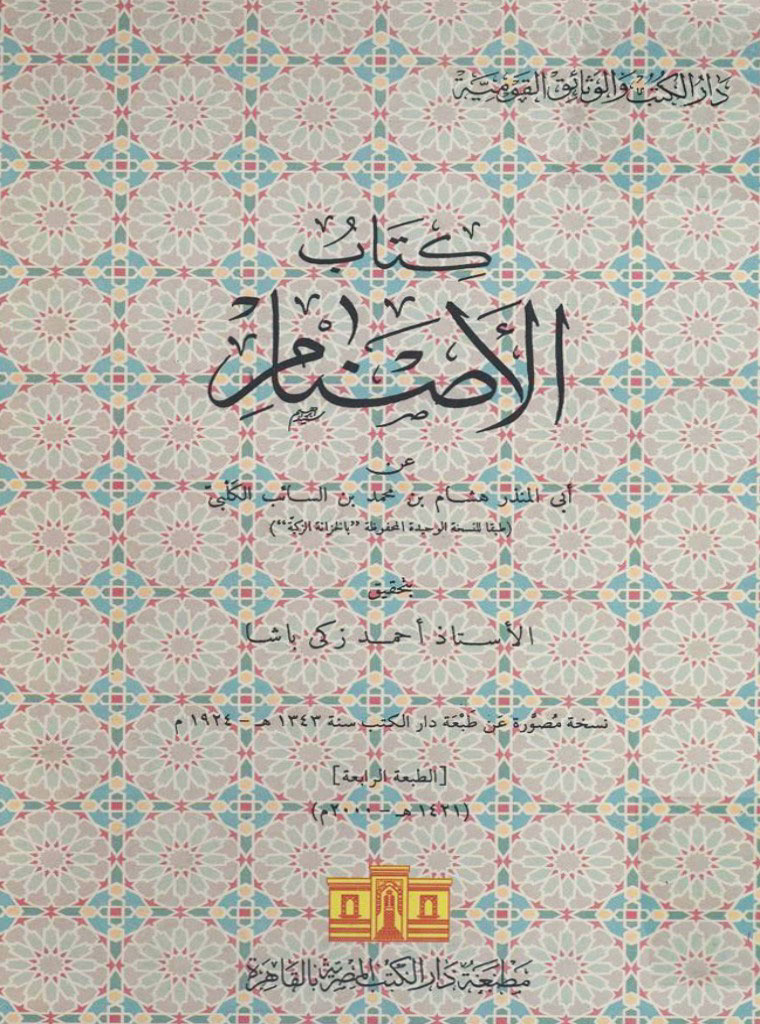 دَارُ الكُتُبُ وَالوَثَائِقِ القَوْمِيَّة
كِتَابُ
الأَصْنَامِ
عن
أبي المنذر هشام بن محمد بن السائب الكَلْبيّ
(طبقا للنسخة الوحيدة المحفوظة "بالخزانة الزكيّة")
بتحقيق
الأستاذ أحمد زكى باشا
نسخة مُصوَّرة عَن طَبْعَة دار الكتب سنة ١٣٤٣ هـ - ١٩٢٤ م
[الطبعة الرابعة]
(١٤٢١ هـ - ٢٠٠٠م)
مَطبَعَة دَارِ الكُتُبِ المِصْرِيَّةِ بِالقَاهِرَة